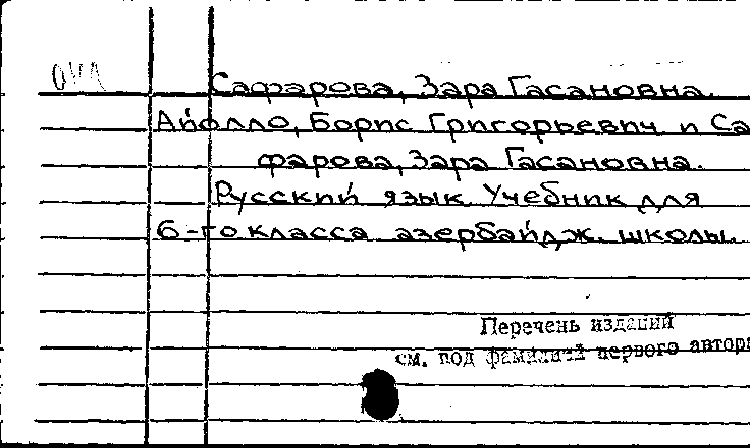 Сафарова, Зара Гасановна.
Айолло, Борис Григорьевич и Са
фарова, Зара Гасановна.
Русский язык. Учебник для
6-го класса азербайдж. школы.
Перечень изданий
см. под фамилией первого автора